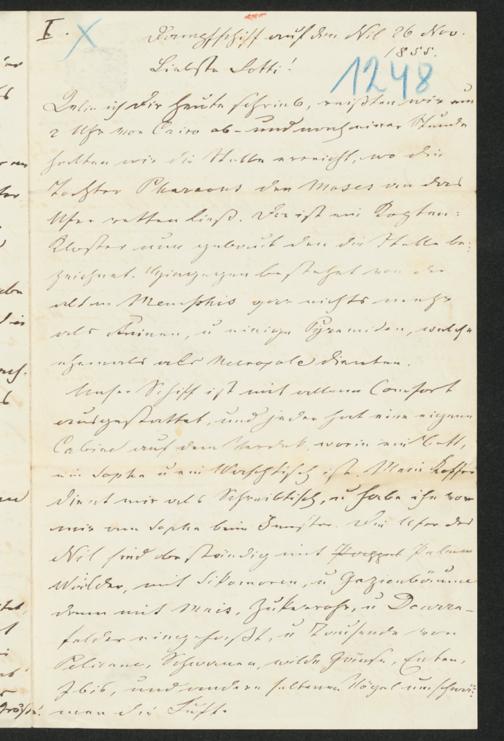 I.
Dampfschiff auf dem Nil 26 Nov.
1855.
Liebste Lotti!
1248
Wie ich Dir heute schrieb, reisten wir um
2 Uhr von Cairo ab – und nach einer Stunde
hatten wir die Stelle erreicht, wo die
Tochter Pharaons den Moses an das
Ufer retten ließ. Dort ist ein Kopten-
Kloster nun gebaut den die Stelle be-
zeichnet. Hingegen bestehet von der
alten Memphis gar nichts mehr
als Ruinen, u einige Pyramiden, welche
ehemals als Necropole dienten.
Unser Schiff ist mit allem Comfort
ausgestattet, und jeder hat eine eigene
Cabine auf dem Verdeck, worin ein Bett,
ein Sopha u ein Waschtisch ist. Mein Koffer
dient mir als Schreibtisch, u habe ihn vor
mir am Sopha beim Fenster. Die Ufer des
Nil sind beständig mit Palmen
Wälder, mit Sikomoren, u Gazienbäume
dann mit Mais, Zukerrohr, u Dourra-
felder eingefaßt, u Tausende von
Pelicane, Schwanen, wilde Gänse, Enten,
Ibis, und andere seltene Vögel umschwär-
men die Lüfte